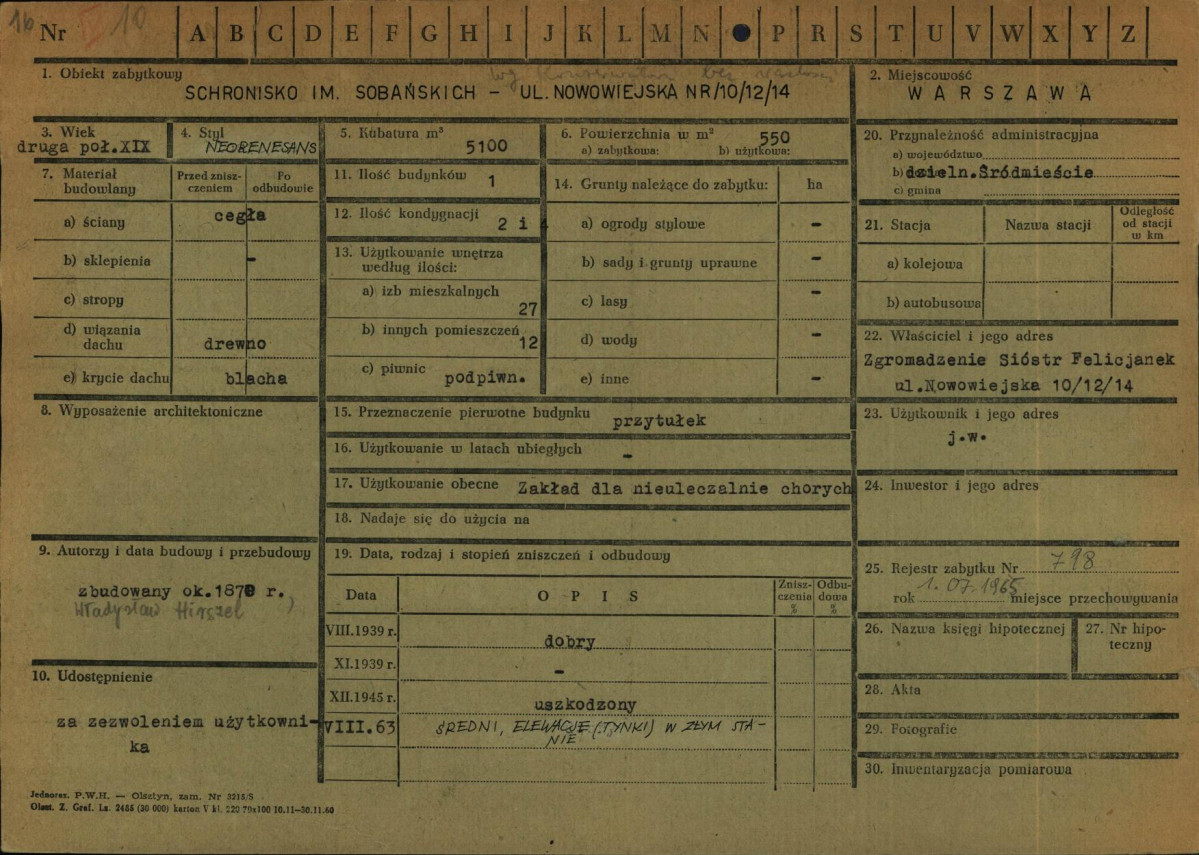 16 Nr IV 10 A B C D E F G H I J K L M N P R S T U V W X Y Z
1. Obiekt zabytkowy
SCHRONISKO IM. SOBAŃSKICH – UL. NOWOWIEJSKA NR/10/12/14
2. Miejscowość
WARSZAWA
3. Wiek
druga poł.XIX
4. Styl
NEORENESANS
5. Kubatura m³
5100
6. Powierzchnia w m² 550
a) zabytkowa: b) użytkowa:
7. Materiał budowlany
Przed zniszczeniem
Po odbudowie
a) ściany cegła
b) sklepienia -
c) stropy
d) wiązania dachu drewno
e) krycie dachu blacha
8. Wyposażenie architektoniczne
9. Autorzy i data budowy i przebudowy
zbudowany ok.1870 r.
Władysław Hirszel
10. Udostępnienie
za zezwoleniem użytkowni-
ka
11. Ilość budynków 1
12. Ilość kondygnacji
2 i
13. Użytkowanie wnętrza
według ilości:
a) izb mieszkalnych
27
b) innych pomieszczeń
12
c) piwnic
podpiwn.
14. Grunty należące do zabytku: ha
a) ogrody stylowe -
b) sady i grunty uprawne -
c) lasy -
d) wody -
e) inne -
15. Przeznaczenie pierwotne budynku przytułek
16. Użytkowanie w latach ubiegłych -
17. Użytkowanie obecne Zakład dla nieuleczalnie chorych
18. Nadaje się do użycia na
19. Data, rodzaj i stopień zniszczeń i odbudowy
Data OPIS Zniszczenia % Odbudowa %
VIII.1939 r. dobry
XI.1939 r. -
XII.1945 r. uszkodzony
VIII.63 ŚREDNI, ELEWACJE (TYNKI) W ZŁYM STA-
NIE
20. Przynależność administracyjna
a) województwo
b) dzieln.Śródmieście
c) gmina
21. Stacja Nazwa stacji Odległość od stacji w km
a) kolejowa
b) autobusowa
22. Właściciel i jego adres
Zgromadzenie Sióstr Felicjanek
ul.Nowowiejska 10/12/14
23. Użytkownik i jego adres
j.w.
24. Inwestor i jego adres
25. Rejestr zabytku Nr 798
rok 1.07.1965 miejsce przechowywania
26. Nazwa księgi hipotecznej
27. Nr hipoteczny
28. Akta
29. Fotografie
30. Inwentaryzacja pomiarowa
Jednoraz. P.W.H. — Olsztyn, zam. Nr 3215/S
Olszt. Z. Graf. Lz. 2486 (30 000) karton V kl. 220 70x100 10.11—30.11.60